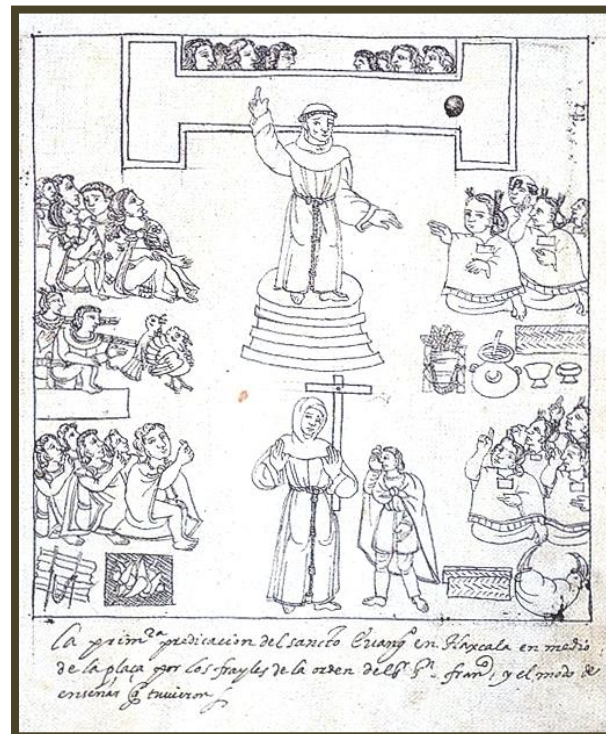 la primra predicacion del sancto Euango en tlaxcala en medio
de la plaça por los frayles de la orden del Sr Sn franco, y el modo de
enseñar q tuuieron